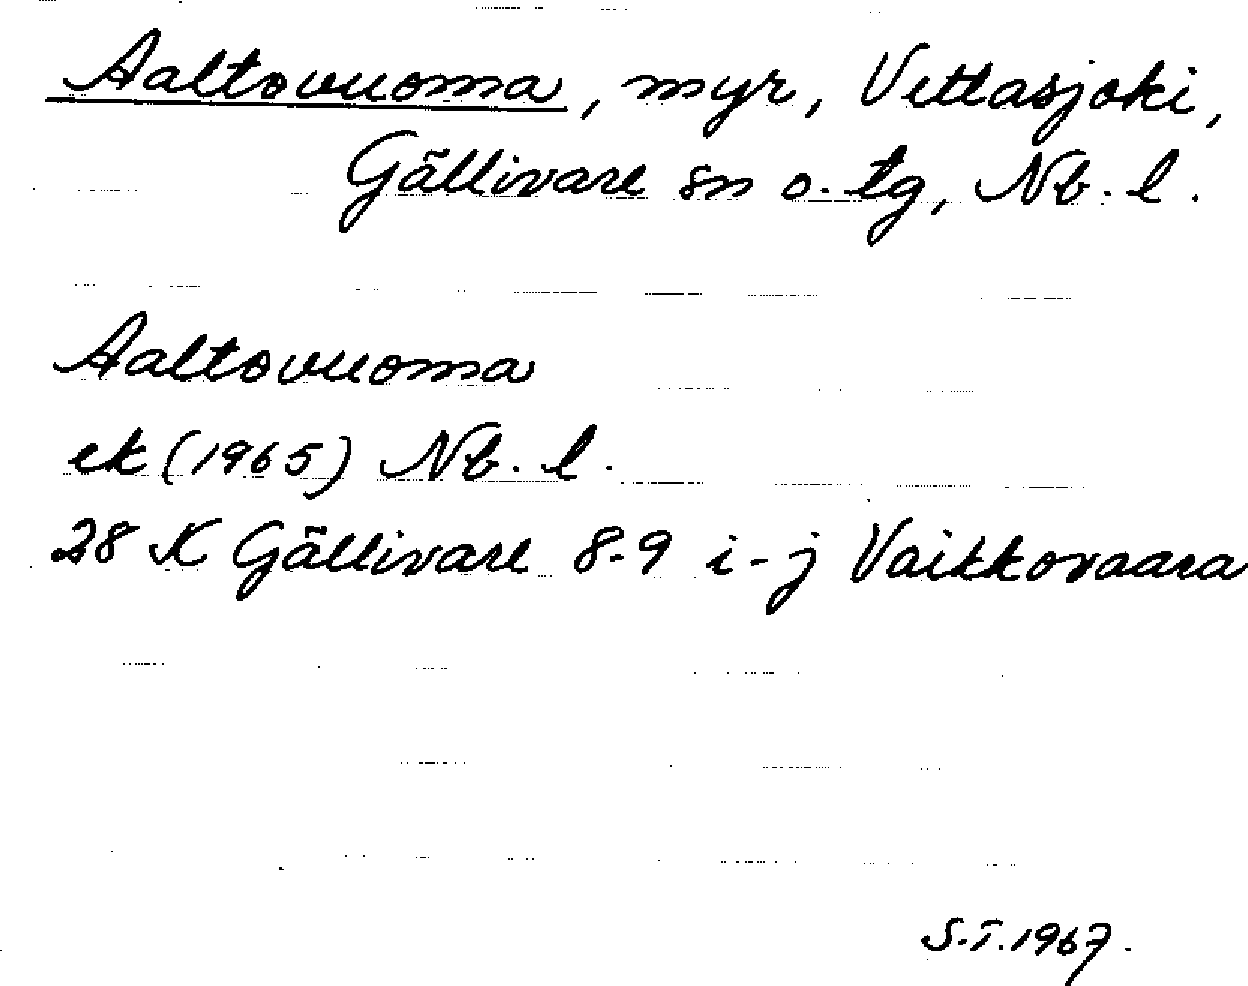 Aaltovuoma, myr, Vettasjoki,
Gällivare sn o. tg, Nb. l.
Aaltovuoma
ek (1965) Nb. l.
28 K Gällivare 8-9 i-j Vaikkovaara
S.T. 1967.